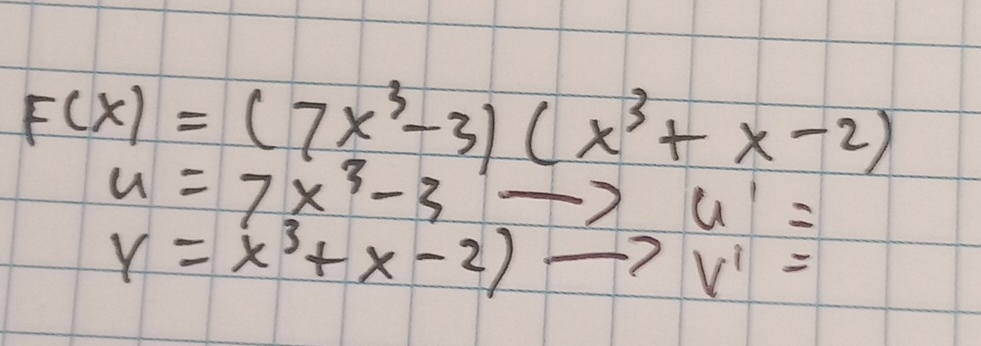 F(x) = (7x³-3)(x³+ x -2)
u = 7x³-3 → u' =
v = x³+x-2) → v' =